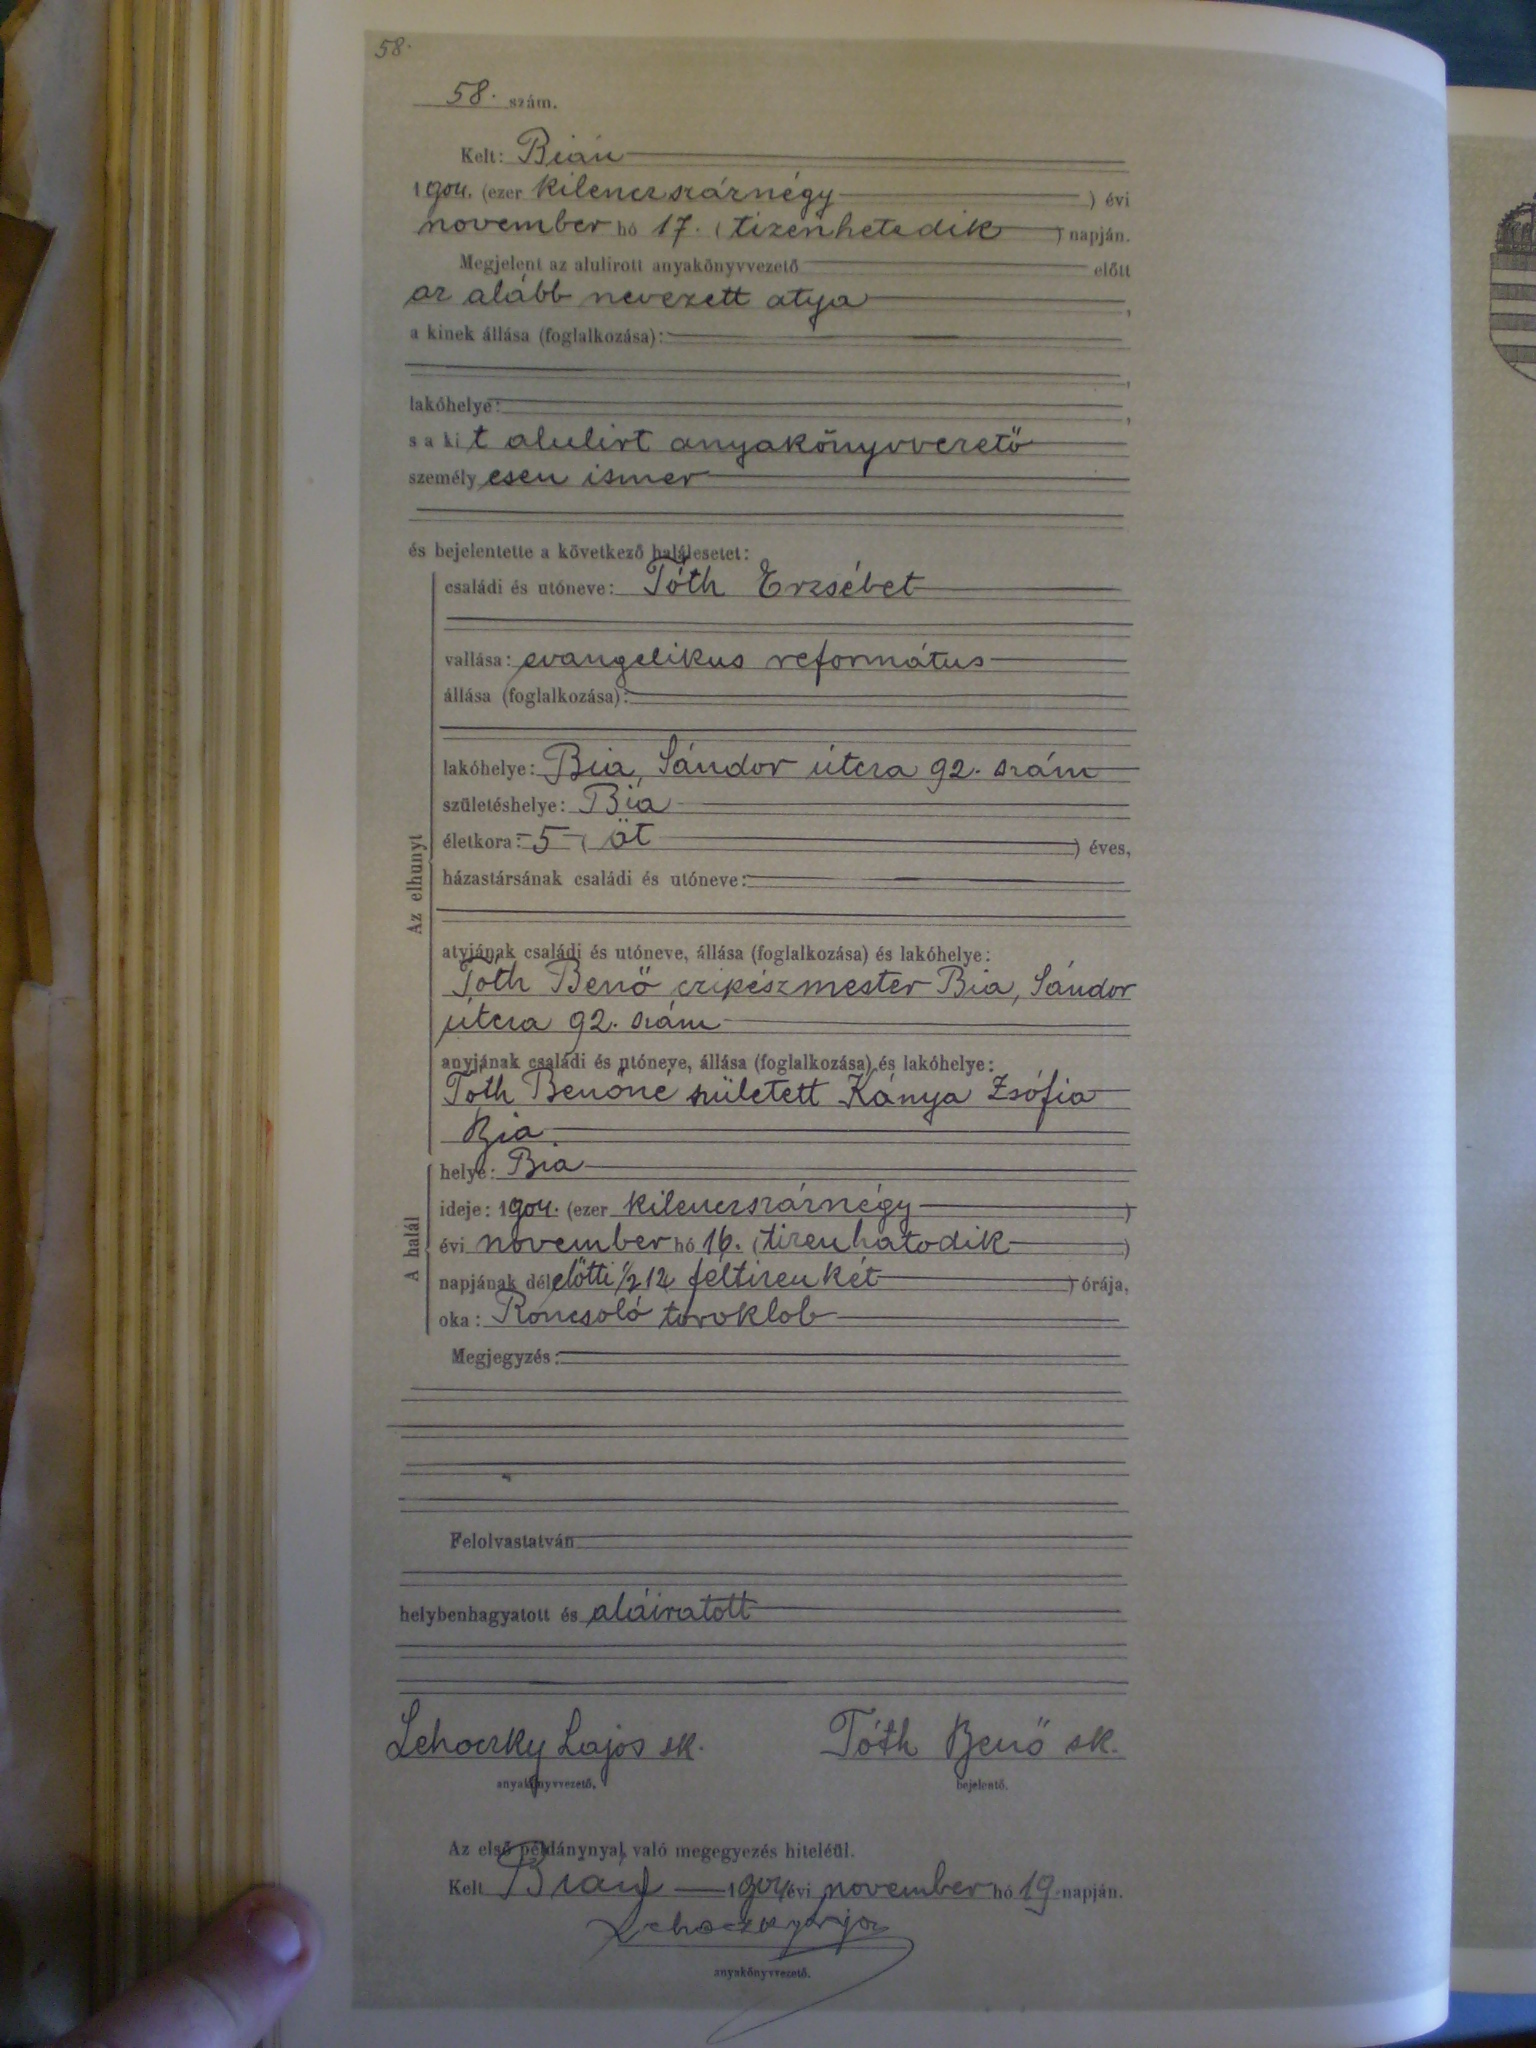 58.
58. szám.
Kelt: Bián
1904. (ezer kilenczszáznégy) évi
november hó 17. (tizenhetedik) napján.
Megjelent az alulirott anyakönyvvezető előtt
az alább nevezett atya,
a kinek állása (foglalkozása):
,
lakóhelye: ,
s a kit alulirt anyakönyvvezető
személyesen ismer
és bejelentette a következő halálesetet:
Az elhunyt
családi és utóneve: Tóth Erzsébet
vallása: evangelikus református
állása (foglalkozása):
lakóhelye: Bia, Sándor útcza 92. szám
születéshelye: Bia
életkora: -5- (öt) éves,
házastársának családi és utóneve:
atyjának családi és utóneve, állása (foglalkozása) és lakóhelye:
Tóth Benő czipészmester Bia, Sándor
útcza 92. szám
anyjának családi és utóneve, állása (foglalkozása) és lakóhelye:
Tóth Benőné született Kánya Zsófia
Bia
A halál
helye: Bia
ideje: 1904. (ezer kilenczszáznégy)
évi november hó 16. (tizenhatodik)
napjának délelőtti 1/2 12 feltizenkét) órája,
oka: Roncsoló toroklob
Megjegyzés:
Felolvastatván
helybenhagyatott és aláiratott
Lehoczky Lajos sk. Tóth Benő sk.
anyakönyvvezető. bejelentő.
Az első példánynyal való megegyezés hiteléül.
Kelt Bián 1904 évi november hó 19 napján.
Lehoczky Lajos
anyakönyvvezető.